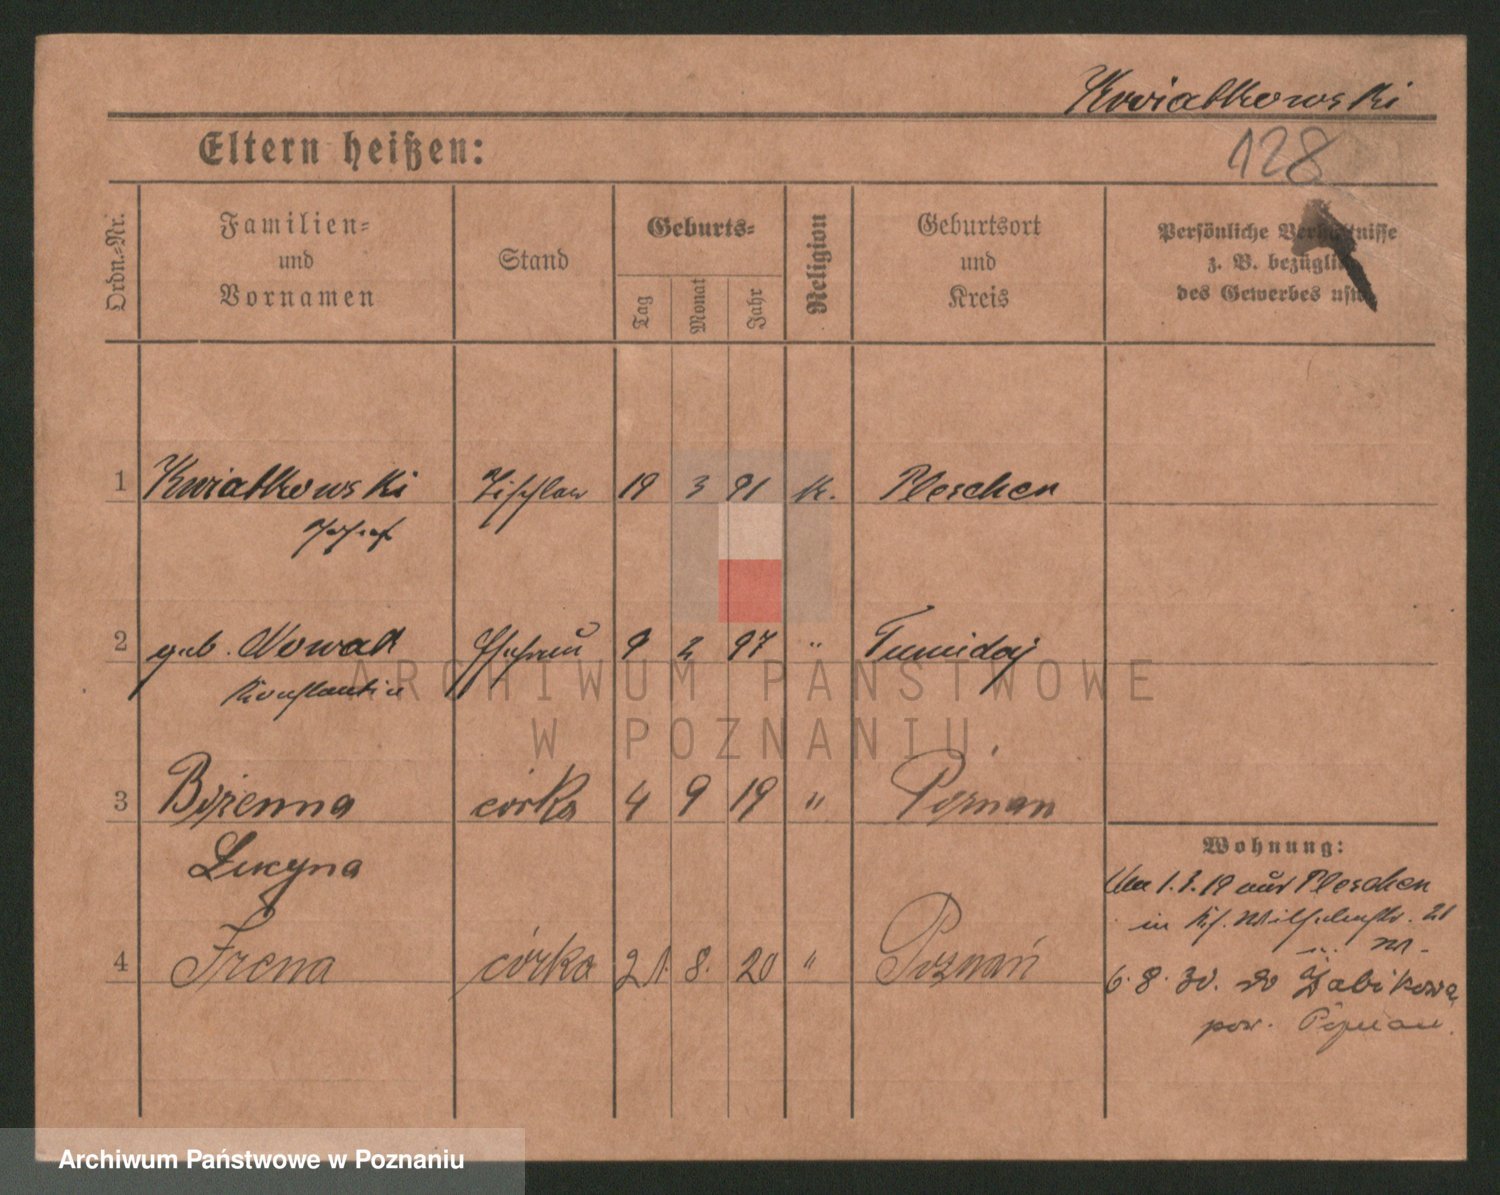 Kwiatkowski
128
Eltern heißen:
Ordn.-Nr.
Familien- und Vornamen
Stand
Geburts-
Tag
Monat
Jahr
Religion
Geburtsort und Kreis
Persönliche Verhältnisse
z. B. bezüglich
des Gewerbes usw.
1 Kwiatkowski Tischler 19 3 91 K. Pleschen
Josef
2 geb. Nowak Ehefrau 9 2 97 " Tumidaj
Konstantia
3 Bożenna córka 4 9 19 " Poznań
Lucyna
4 Irena córka 21. 8. 20 " Poznań
Wohnung:
1.3.19 aus Pleschen
in 21
6.8.30. do Żabikowa
pow. Poznań.
ARCHIWUM PAŃSTWOWE
W POZNANIU
Archiwum Państwowe w Poznaniu